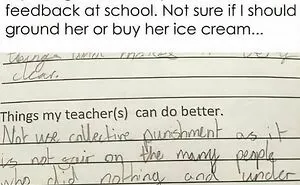 feedback at school. Not sure if I should
ground her or buy her ice cream...
clear.
Things my teacher(s) can do better.
Not use collective punishment as it
is not fair on the many people
who did nothing and under